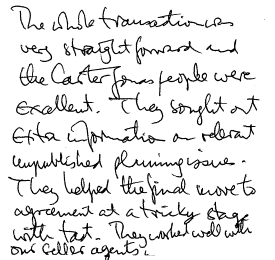 The whole transaction was
very straightforward and
the Carter Jonas people were
excellent. They sought out
extra information on relevant
unpublished planning issues.
They helped the final move to
agreement at a tricky stage
with tact. They worked well with
our seller agents.